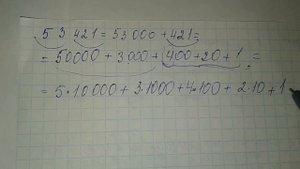 53 421 = 53 000 + 421 =
= 50000 + 3000 + 400 + 20 + 1 =
= 5·10 000 + 3·1000 + 4·100 + 2·10 + 1